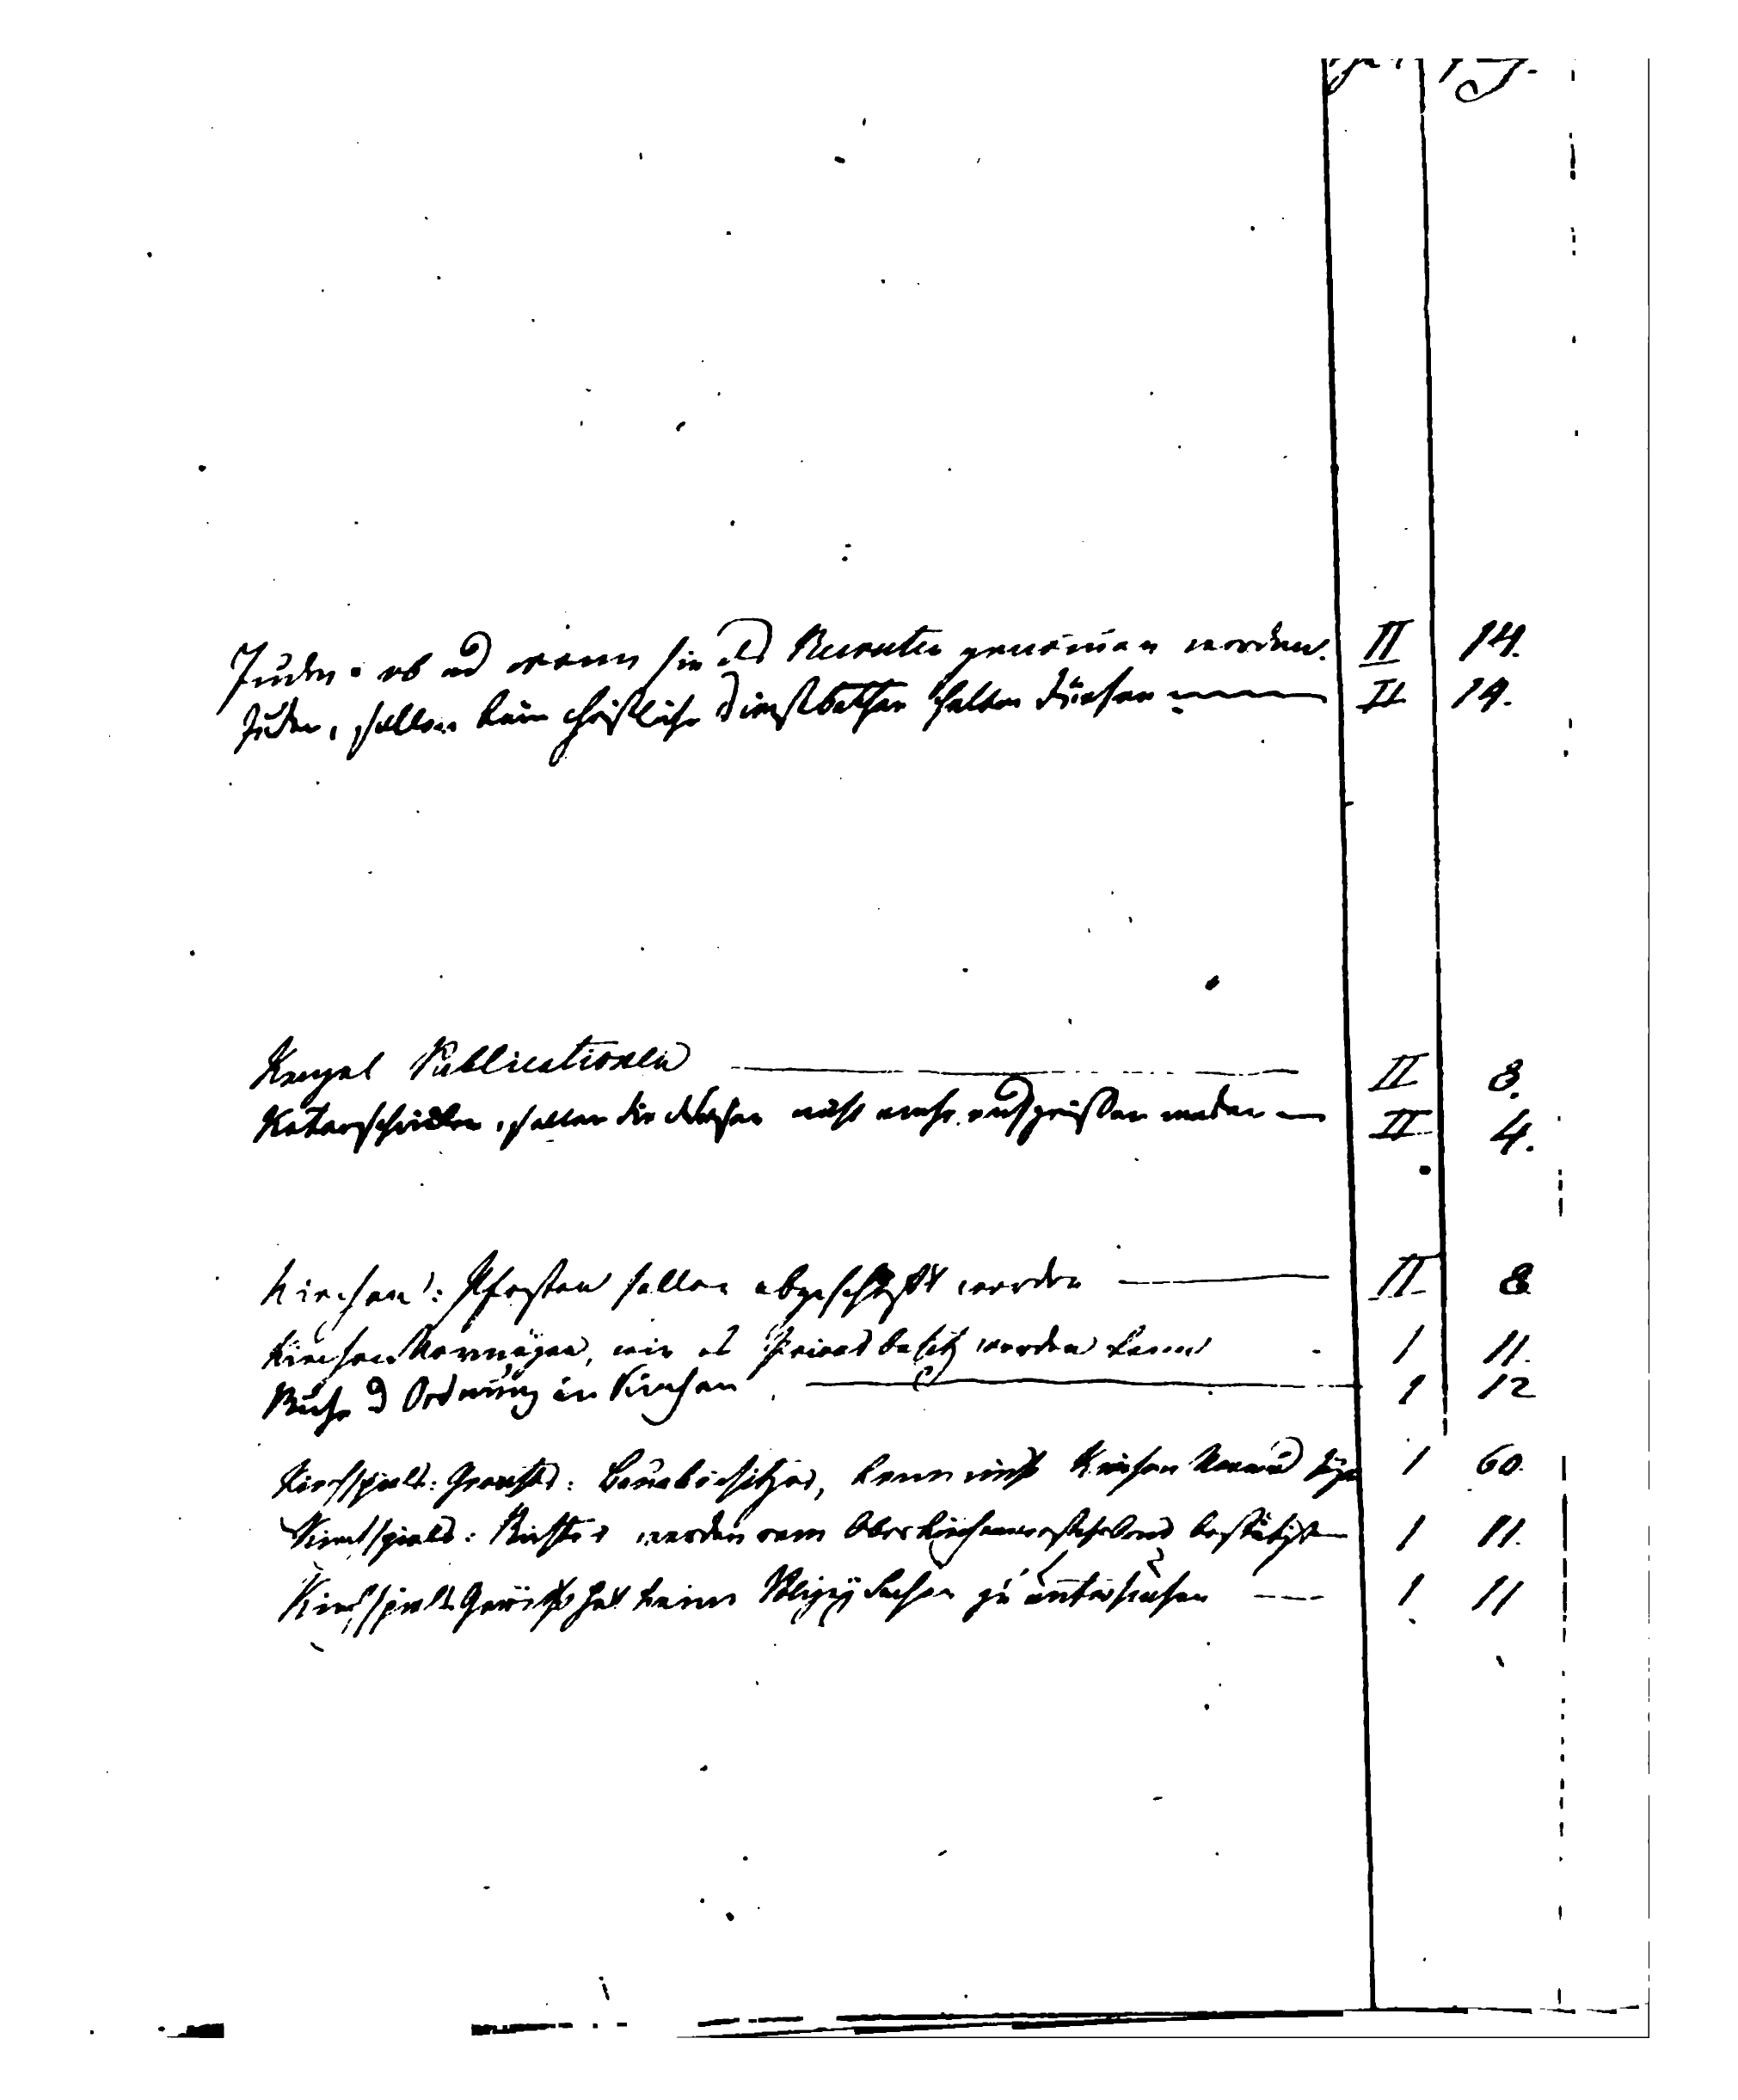 Juden: ob und wenn sie als Recruten genommen werden. II 14.
Juden, sollen keine christliche Dienstbothen halten dürfen II 14.
Kanzel Publicationen II 8.
sollen die nicht mehr werden II 4.
Kirchen: Pfosten sollen abgeschafft werden II 8
Kirchen Vermögen, wie es Privat besitz werden kann 1 11.
Ruhe u Ordnung in Kirchen 1 12
Kirchspiels: Gerichts: Beisitzer, kann nicht Kirchen Vormund 1 60.
Kirchspiels: Richter werden vom Oberkirchenvorsteheramt bestätigt 1 11.
Kirchspiels Gericht hat keine Polizey Sachen zu untersuchen 1 11